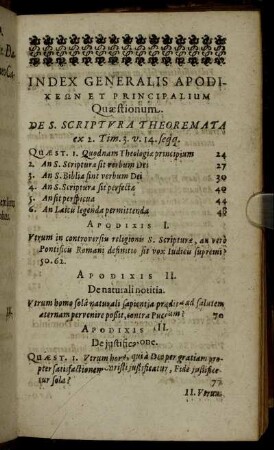 INDEX GENERALIS APODI-
ΚΕΩΝ ET PRINCIPALIUM
Quæstionum.
DE S. SCRIPTVRA THEOREMATA
ex 2. Tim. 3. v. 14. seqq.
QUÆST. 1. Quodnam Theologiæ principium 24
2. An S. Scriptura sit verbum Dei 27
3. An S. Biblia sint verbum Dei 30
4. An S. Scriptura sit perfecta 40
5. An sit perspicua 44
6. An Laicis legenda permittenda 48
APODIXIS I.
Vtrum in controversiis religionis S. Scripturæ, an verò
Pontificis Romani definitio sit vox Iudicis supremi?
50. 62.
APODIXIS II.
De naturali notitia.
Vtrum homo solâ naturali sapientiâ præditus ad salutem
æternam pervenire possit, contra Puccium?
APODIXIS III.
De justificatione.
QUÆST. 1. Vtrum homo, qui à Deo per gratiam propter
satisfactionem Christi justificatur, Fide justificetur
sola? 72
II. Vtrum